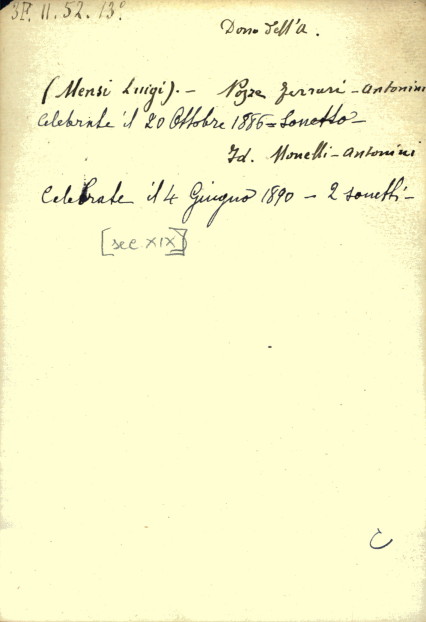 3F. II. 52. 13º
Dono dell'A.
(Mensi Luigi). - Nozze Ferrari - Antonini
Celebrate il 20 Ottobre 1886 = Sonetto -
Id. Monelli - Antonini
Celebrate il 4 Giugno 1890 - 2 sonetti -
[sec. XIX]
C